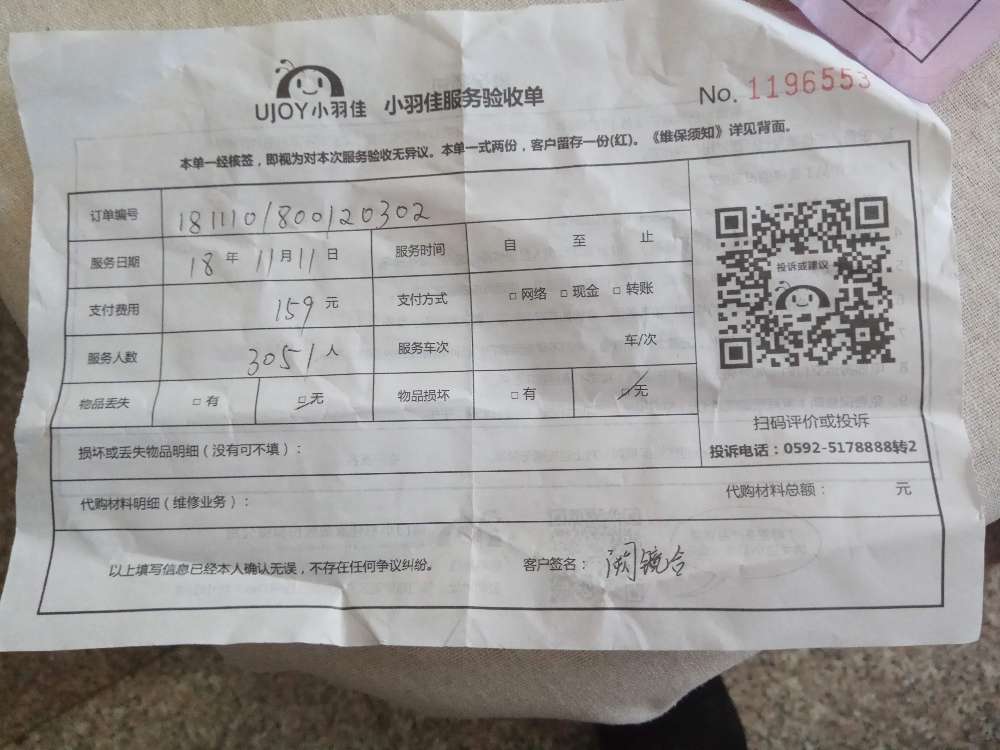 UJOY小羽佳 小羽佳服务验收单 No. 1196553
本单一经核签，即视为对本次服务验收无异议。本单一式两份，客户留存一份(红)。《维保须知》详见背面。
订单编号 1811101800120302
服务日期 18 年 11 月 11 日 服务时间 自 至 止
支付费用 159 元 支付方式 □ 网络 □ 现金 □ 转账
服务人数 3051 人 服务车次 车/次
物品丢失 □ 有 □ 无 物品损坏 □ 有 □ 无
投诉或建议
扫码评价或投诉
投诉电话：0592-5178888转2
损坏或丢失物品明细（没有可不填）：
代购材料明细（维修业务）： 代购材料总额： 元
以上填写信息已经本人确认无误，不存在任何争议纠纷。 客户签名：